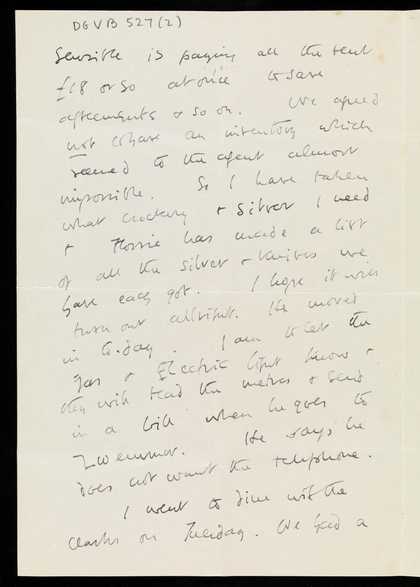 DGVB 527(2)
sensible is paying all the rent
£18 or so at once to save
agreements & so on. We agreed
not to have an inventory which
seemed to the agent almost
impossible. So I have taken
what crockery & silver I need
& Florrie has made a list
of all the silver & knives we
have each got. I hope it will
turn out allright. He moved
in to-day. I am to let the
Gas & Electric light know &
they will read the metres & send
in a bill when he goes the
2
does not want the telephone.
I went to dine with the
Clarks on Tuesday. We had a